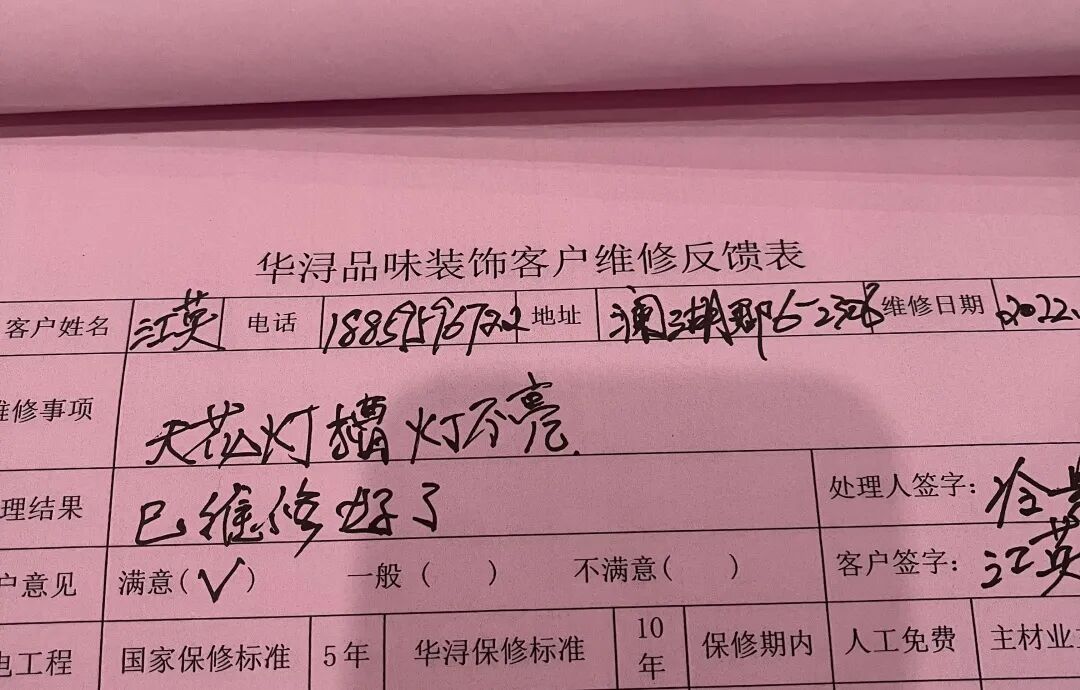 华浔品味装饰客户维修反馈表
客户姓名 江英 电话 18859596722 地址 澜湖郡6-2326 维修日期 2022.
维修事项 天花灯槽灯不亮.
理结果 已维修好了 处理人签字:
户意见 满意(√) 一般( ) 不满意( ) 客户签字: 江英
电工程 国家保修标准 5年 华浔保修标准 10年 保修期内 人工免费 主材业